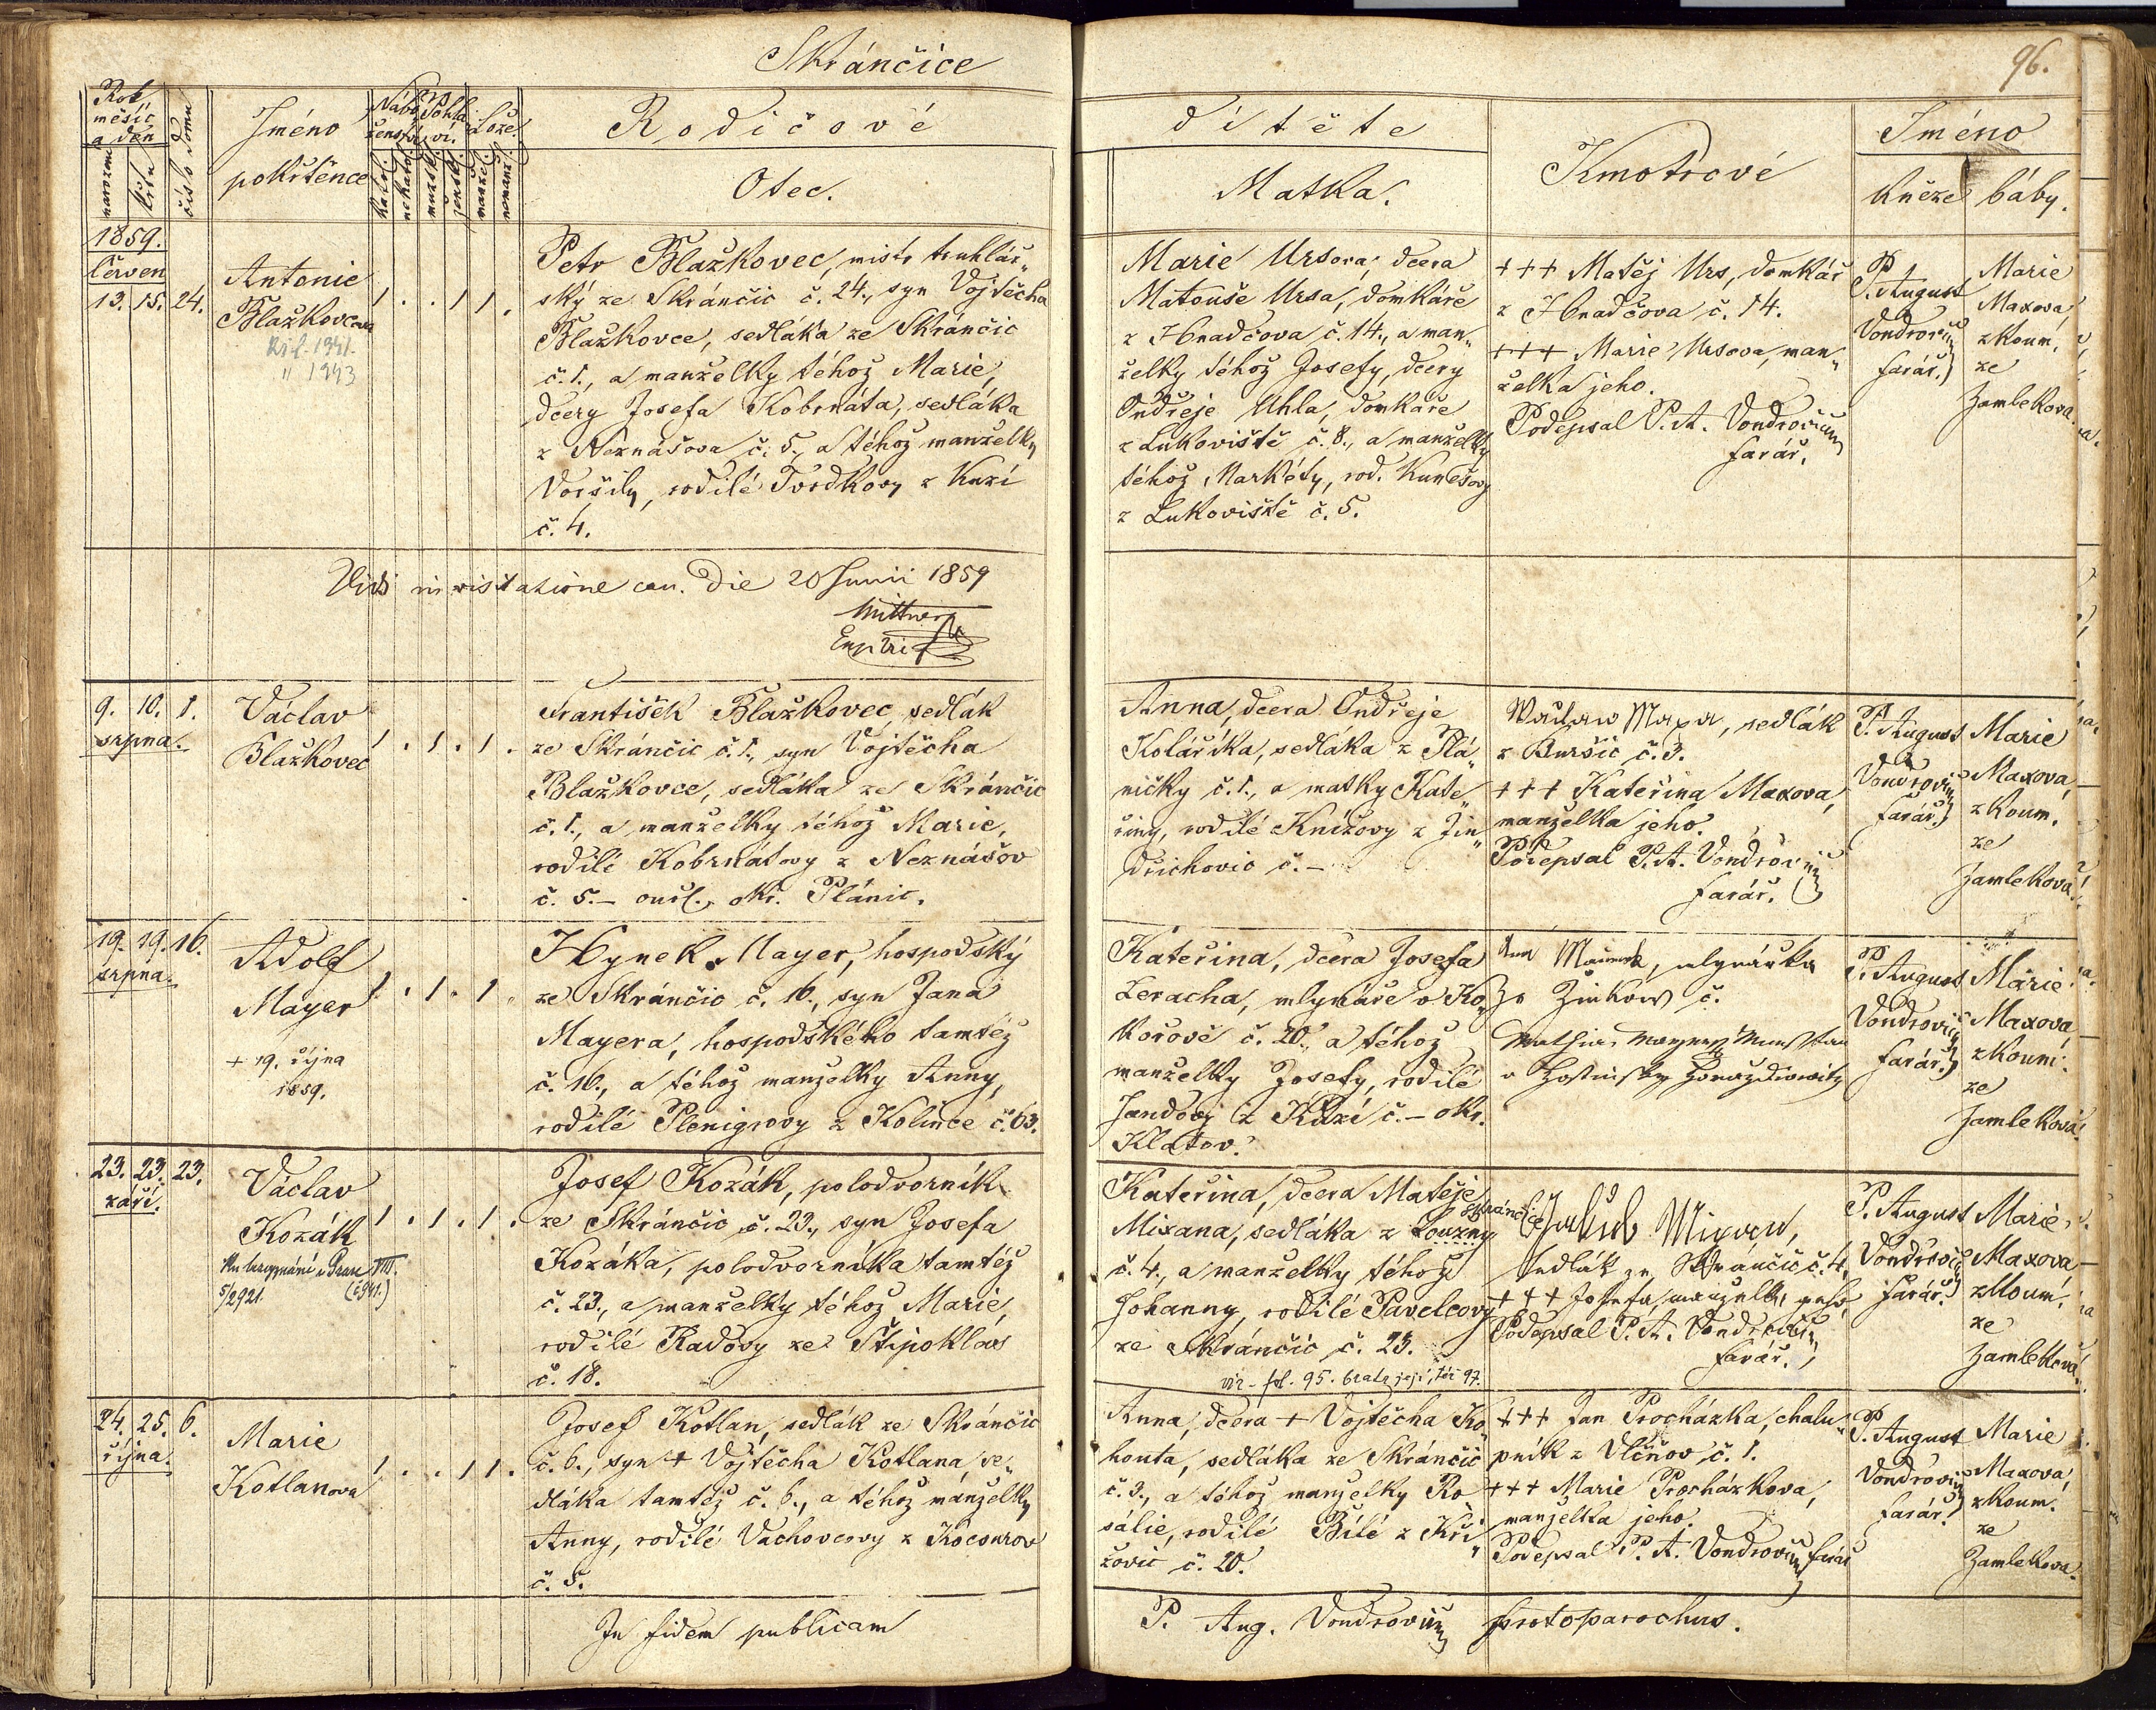 Skránčice
96.
Rok
měsíc
a den
narození
křtu
číslo domu
Jméno
pokřtěnce
Nábo-
ženství
Pohla-
ví.
Lože.
katol.
nekatol.
mužsk.
žensk.
manžel.
nemanž.
Rodičové
Otec.
dítěte
Matka.
Kmotrové
Jméno
kněze
báby.
1859.
Červen
13. 15. 24.
Antonie
Blažkovcova
1 . . 1 1 .
Petr Blažkovec, mistr truhlář„
ský ze Skránčic č. 24., syn Vojtěcha
Blažkovce, sedláka ze Skránčic
č. 1., a manželky téhož Marie,
dcery Josefa Kobrnáta, sedláka
z Neznášova č. 5., a téhož manželky
Voršily, rodilé Tvrdkovy z Kuzí
č. 4.
Marie Ursova, dcera
Matouše Ursa, domkáře
z Hnadčova č. 14., a man„
želky téhož Josefy, dcery
Ondřeje Uhla, domkáře
z Lukoviště č. 8., a manželky
téhož Markéty, rod. Kunešovy
z Lukoviště č. 5.
+++ Matěj Urs, domkář
z Hnadčova č. 14.
+++ Marie Ursova, man„
želka jeho.
Podepsal P. A. Vondrovic
farář.
P. August
Vondrovic
farář.
Marie
Maxova,
zkoum.
ze
Zamlekova.
Vidi in visitatione can. die 20 Junii 1859
9. 10. 1.
srpna.
Václav
Blažkovec
1 . 1 . 1 .
František Blažkovec, sedlák
ze Skránčic č. 1., syn Vojtěcha
Blažkovce, sedláka ze Skránčic
č. 1., a manželky téhož Marie,
rodilé Kobrnátovy z Neznášov
č. 5. – ouřl. okr. Plánic.
Anna, dcera Ondřeje
Kolaříka, sedláka z Plá„
ničky č. 1., a matky Kate„
řiny, rodilé Knížovy z Jin„
dřichovic č. –
Waclaw Maxa, sedlák
z Buršic č. 3.
+++ Kateřina Maxova,
manželka jeho.
Podepsal P. A. Vondrovic
farář.
P. August
Vondrovic
farář.
Marie
Maxova,
zkoum.
ze
Zamlekova.
19. 19. 16.
srpna.
Adolf
Mayer
+ 19. října
1859.
1 . 1 . 1 .
Hynek Mayer, hospodský
ze Skránčic č. 16., syn Jana
Mayera, hospodského tamtéž
č. 16., a téhož manželky Anny,
rodilé Plenigrovy z Kolince č. 63.
Kateřina, dcera Josefa
Leracha, mlynáře v Ko„
kořově č. 20., a téhož
manželky Josefy, rodilé
Jandovy z Kůzí č. – okr.
Klatov.
mlynářka
ze Žinkow č.
P. August
Vondrovic
farář.
Marie
Maxova
zkoum.
ze
Zamlekova.
23. 23. 23.
září.
Václav
Kozák
5/2921. (č. 941.)
1 . 1 . 1 .
Josef Kozák, polodvorník
ze Skránčic č. 23., syn Josefa
Kozáka, polodvorníka tamtéž
č. 23., a manželky téhož Marie,
rodilé Radovy ze Štipoklas
č. 18.
Kateřina, dcera Matěje
Mixana, sedláka z Louzny
Skránčic
č. 4., a manželky téhož
Johanny, rodilé Pavelcovy
ze Skránčic č. 23.
viz – fol. 95. bratr její, též 97.
Jakub Mixan,
sedlák ze Skránčic č. 4.
+++ Josefa, manželka jeho,
Podepsal P. A. Vondrovic
farář.
P. August
Vondrovic
farář.
Marie
Maxova
zkoum.
ze
Zamlekova.
24. 25. 6.
října.
Marie
Kotlanova
1 . . 1 1 .
Josef Kotlan, sedlák ze Skránčic
č. 6., syn + Vojtěcha Kotlana, se„
dláka tamtéž č. 6., a téhož manželky
Anny, rodilé Vachovcovy z Kocourov
č. 5.
Anna, dcera + Vojtěcha Ko„
houta, sedláka ze Skránčic
č. 3., a téhož manželky Ro„
sálie, rodilé Bílé z Kři„
žovic č. 20.
+++ Jan Procházka, chalu„
pník z Vlčňov č. 1.
+++ Marie Procházkova,
manželka jeho.
Podepsal P. A. Vondrovic farář
P. August
Vondrovic
farář.
Marie
Maxova,
zkoum.
ze
Zamlekova.
In fidem publicam
P. Aug. Vondrovic protoparochus.